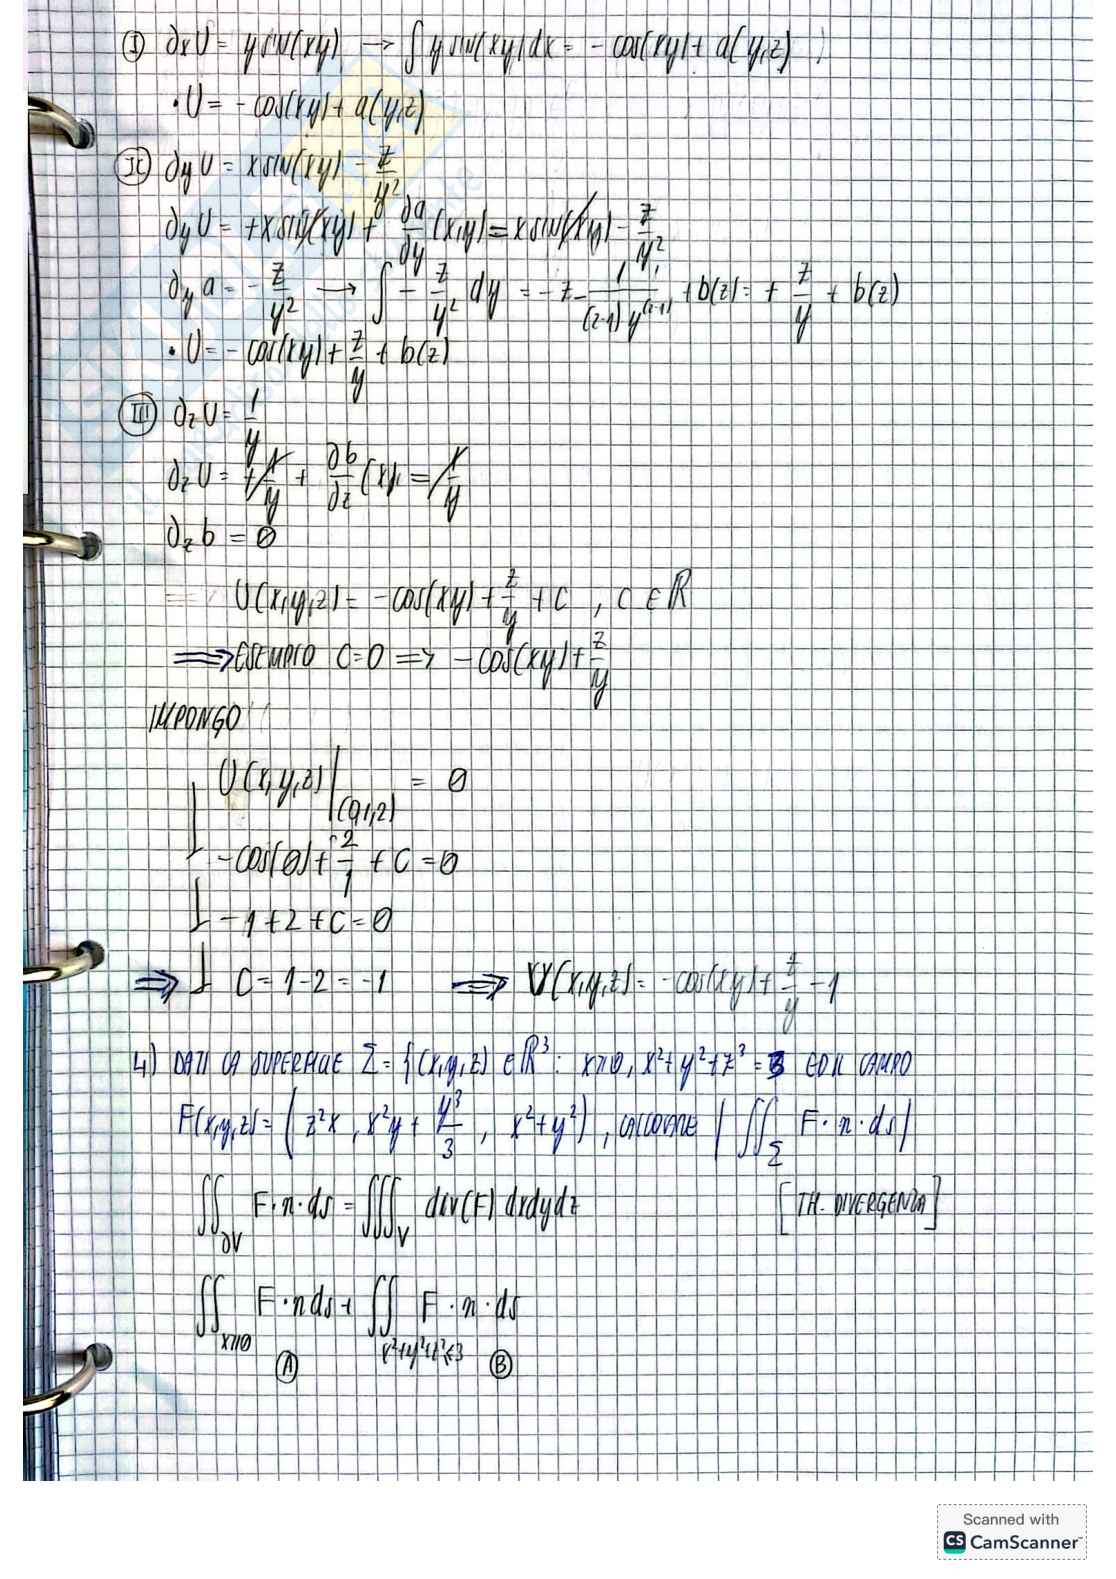 I) ∂xU = y sin(xy) → ∫ y sin(xy) dx = - cos(xy) + a(y,z)
• U = - cos(xy) + a(y,z)
II) ∂yU = x sin(xy) - z/y²
∂yU = + x sin(xy) + ∂a/∂y (x,y) = x sin(xy) - z/y²
∂y a = - z/y² → ∫ - z/y² dy = - z - 1/((2-1) y^(2-1)) + b(z) = + z/y + b(z)
• U = - cos(xy) + z/y + b(z)
III) ∂zU = 1/y
∂zU = + 1/y + ∂b/∂z (x,y) = 1/y
∂z b = 0
U(x,y,z) = - cos(xy) + z/y + c , c ∈ ℝ
⟹ ESEMPIO C=0 ⟹ - cos(xy) + z/y
IMPONGO
U(x,y,z) |(0,1,2) = 0
- cos(0) + 2/1 + C = 0
- 1 + 2 + C = 0
⟹ C = 1 - 2 = -1 ⟹ U(x,y,z) = - cos(xy) + z/y - 1
4) DATI LA SUPERFICIE Σ = {(x,y,z) ∈ ℝ³ : x≥0, x² + y² + z³ = 3 ED IL CAMPO
F(x,y,z) = ( z²x , x²y + y³/3 , x² + y² ) , CALCOLARE | ∬Σ F · n · ds |
∬∂V F · n · ds = ∭V div(F) dxdydz [TH. DIVERGENZA]
∬x≥0 F · n ds + ∬x²+y²+z²≤3 F · n · ds
A B
Scanned with
CS CamScanner